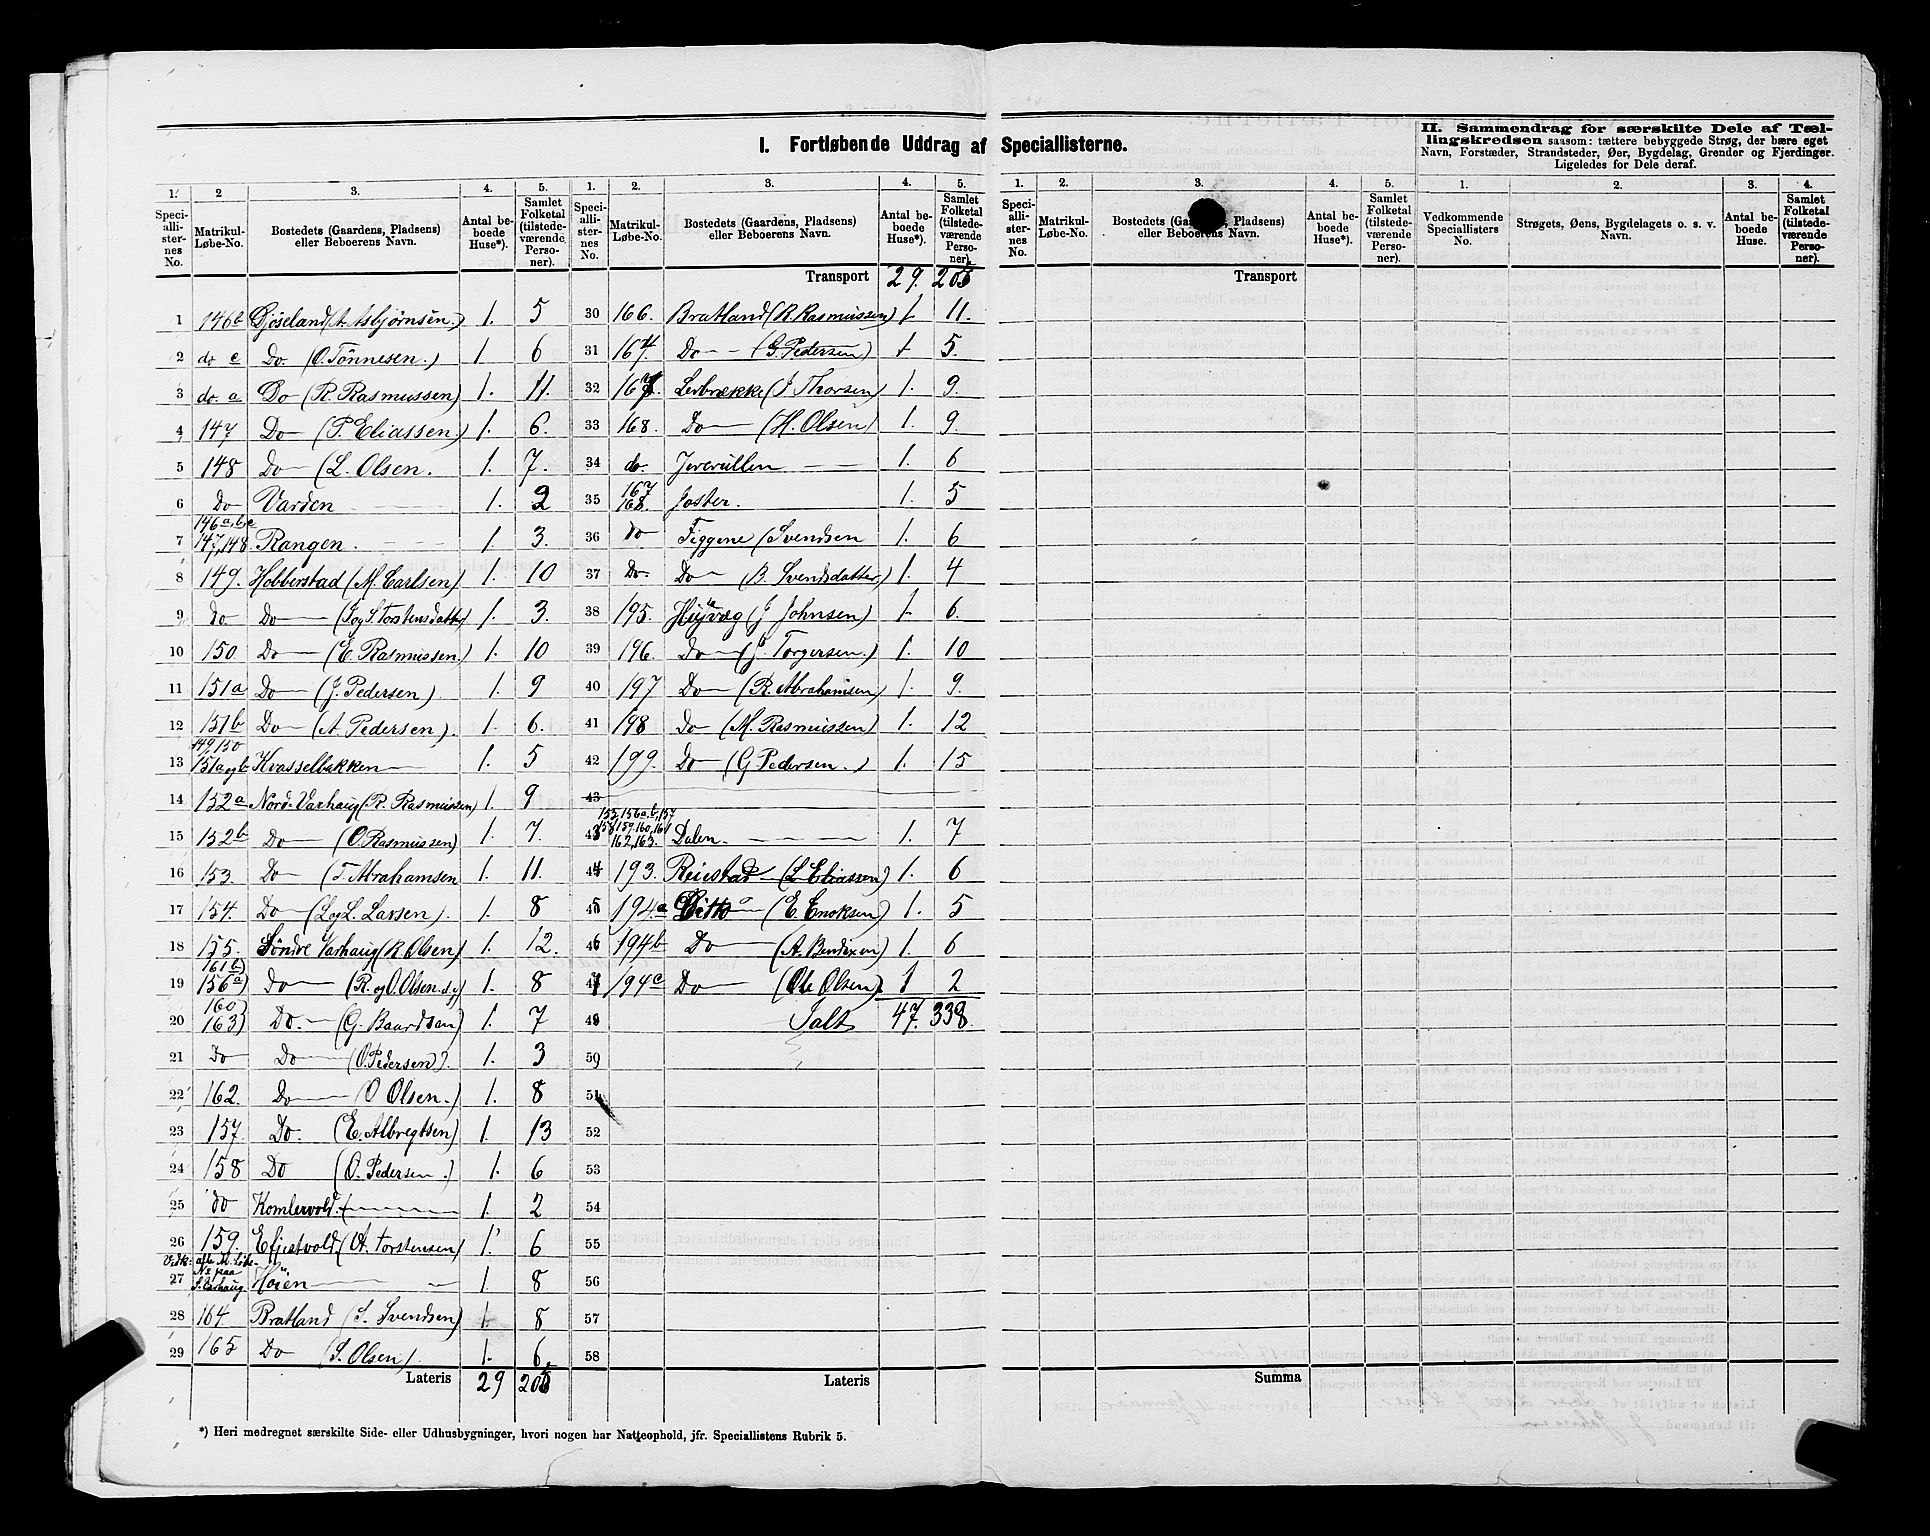 I. Fortløbende Uddrag af Speciallisterne.
II. Sammendrag for særskilte Dele af Tæl-
lingskredsen saasom: tættere bebyggede Strøg, der bære eget
Navn, Forstæder, Strandsteder, Øer, Bygdelag, Grender og Fjerdinger.
Ligeledes for Dele deraf.
1. 2 3. 4. 5. 1. 2. 3. 4. 5. 1. 2. 3. 4. 5. 1. 2. 3. 4.
Speci-alli-ster-nes No. Matrikul-Løbe-No. Bostedets (Gaardens, Pladsens) eller Beboerens Navn. Antal be-boede Huse*). Samlet Folketal (tilstede-værende Perso-ner).
Speci-alli-ster-nes No. Matrikul-Løbe-No. Bostedets (Gaardens, Pladsens) eller Beboerens Navn. Antal be-boede Huse*). Samlet Folketal (tilstede-værende Perso-ner).
Speci-alli-ster-nes No. Matrikul-Løbe-No. Bostedets (Gaardens, Pladsens) eller Beboerens Navn. Antal be-boede Huse*). Samlet Folketal (tilstede-værende Perso-ner).
Vedkommende Speciallisters No. Strøgets, Øens, Bygdelagets o. s. v. Navn. Antal be-boede Huse. Samlet Folketal (tilstede-værende Perso-ner).
1 146b Djöseland (A. Asbjørnsen.) 1. 5
2 do c Do. (O. Tönnesen.) 1. 6
3 do a Do (R. Rasmussen) 1. 11.
4 147 Do (P. Eliassen.) 1. 6.
5 148 Do (L. Olsen. 1. 7.
6 Do Varden 1. 2
7 146a,b,c 147,148 Rangen. 1 3.
8 149. Hobberstad (M. Carlsen) 1. 10
9 Do Do (I og S. Torstensdatter) 1. 3.
10 150 Do (E. Rasmussen.) 1. 10
11 151a Do (J. Pedersen). 1. 9
12 151b Do (A. Pedersen). 1. 6.
13 149, 150 151a og b Kvasselbakken 1. 5
14 152a Nord-Varhaug (R. Rasmussen) 1. 9
15 152b Do (O. Rasmussen) 1. 7.
16 153. Do (T. Abrahamsen 1. 11.
17 154. Do (L og L. Larsen). 1. 8
18 155. Söndre Varhaug (R. Olsen) 1. 12.
19 161b) 156a) Do (R. og O. Olsen d.y) 1. 8
20 160) 163) Do. (G. Baardsen) 1. 7
21 Do Do (O. Pedersen). 1. 3
22 162. Do (O Olsen.) 1. 8
23 157. Do. (E. Albregtsen) 1. 13
24 158 Do (O. Pedersen.) 1. 6
25 do Komlevold. 1. 2
26 159. Efjestvold (A. Torstensen) 1. 6
27 Vedk: alle M. Löbe-No paa S. Varhaug. Höien 1 8
28 164 Bratland (S. Svendsen) 1. 8
29 165 Do (S. Olsen). 1. 6.
Lateris 29 205
Transport 29. 205
30 166. Bratland (R. Rasmussen) 1 11.
31 167. Do (G. Pedersen) 1 5.
32 167. Lerbrække (J Thorsen) 1. 9.
33 168. Do (H. Olsen) 1. 9.
34 do. Jererüllen 1. 6
35 167 168. Joster. 1. 5
36 do Figgene (Svendsen 1. 6
37 Do. Do (B. Svendsdatter.) 1. 4
38 195. Hujvæg (J Johnsen) 1. 6.
39 196. Do (J. Torgersen.) 1. 10
40 197 Do (R. Abrahamsen) 1. 9.
41 198 Do (M. Rasmussen) 1. 12
42 199. Do (G. Pedersen.) 1. 15
43
43 155, 156a, b, 157 158, 159. 160, 161 162, 163. Dalen. 1. 7
44 193. Reiestad (L Eliassen) 1. 6
45 194a Ditto (E. Enoksen) 1. 5
46 194b Do (A. Bendixen) 1. 6
47 194c Do (Ole Olsen). 1 2
49 Ialt 47. 338.
50
51
52
53
54
55
56
57
58
Lateris
Transport
Summa
*) Heri medregnet særskilte Side- eller Udhusbygninger, hvori nogen har Natteophold, jfr. Speciallistens Rubrik 5.